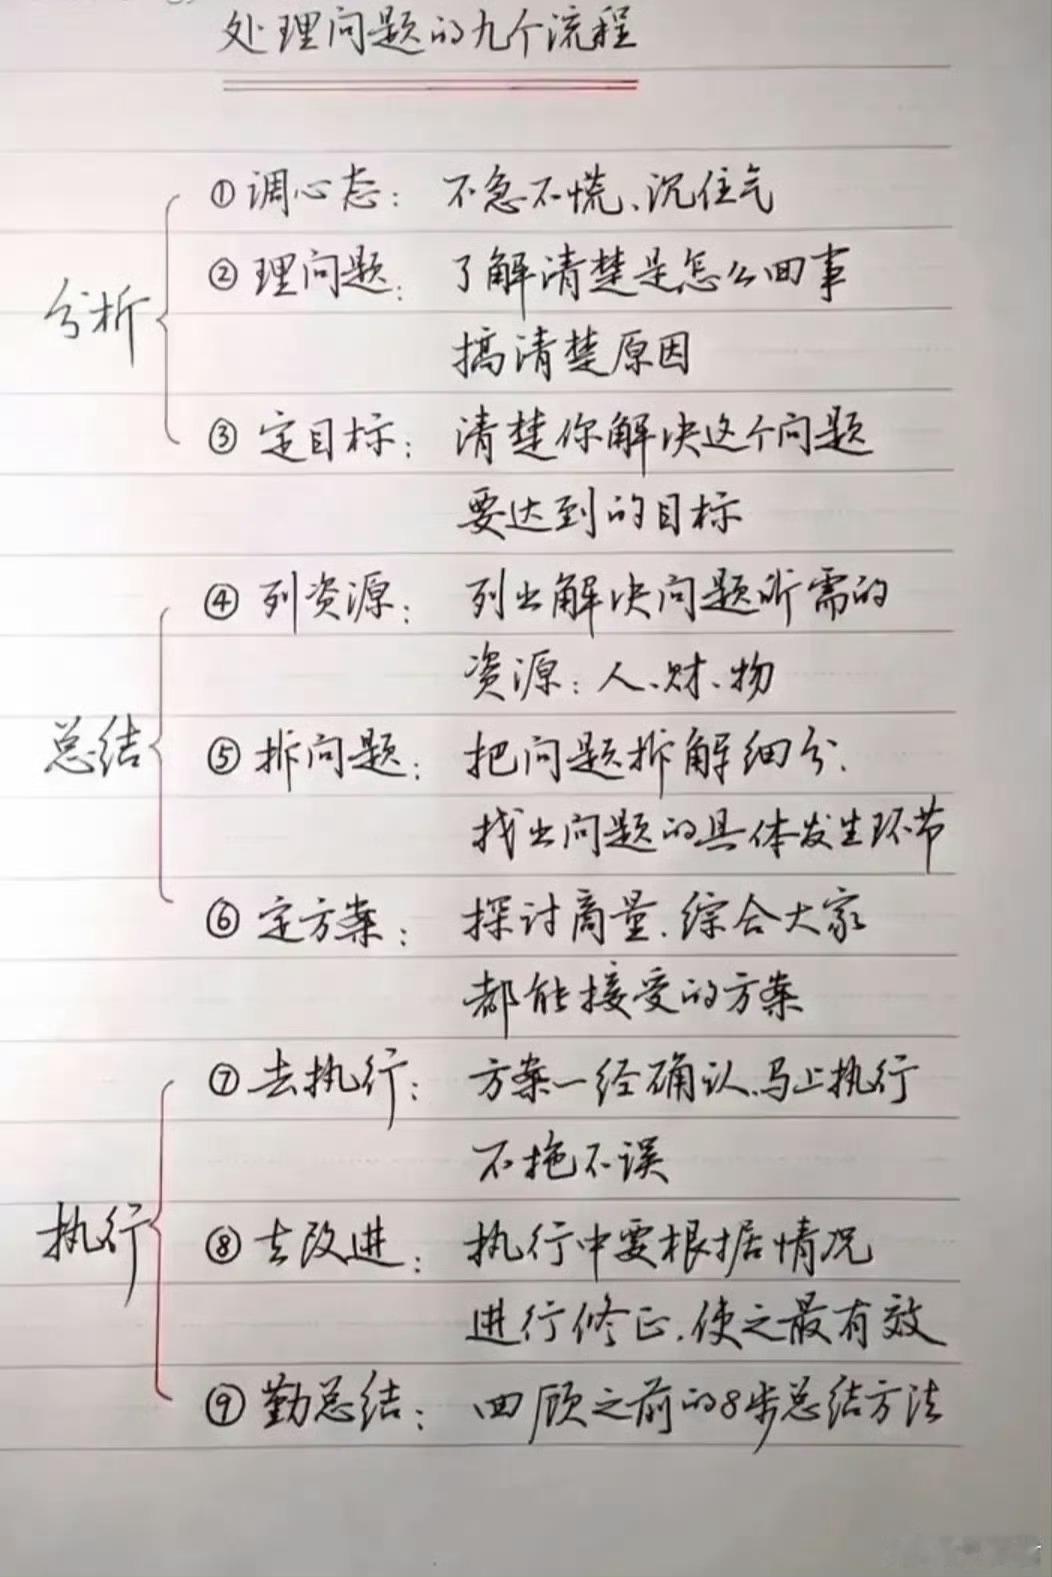 处理问题的九个流程
分析
①调心态：不急不慌、沉住气
②理问题：了解清楚是怎么回事
搞清楚原因
③定目标：清楚你解决这个问题
要达到的目标
总结
④列资源：列出解决问题所需的
资源：人、财、物
⑤拆问题：把问题拆解细分.
找出问题的具体发生环节
⑥定方案：探讨商量.综合大家
都能接受的方案
执行
⑦去执行：方案一经确认、马上执行
不拖不误
⑧去改进：执行中要根据情况
进行修正.使之最有效
⑨勤总结：回顾之前的8步总结方法